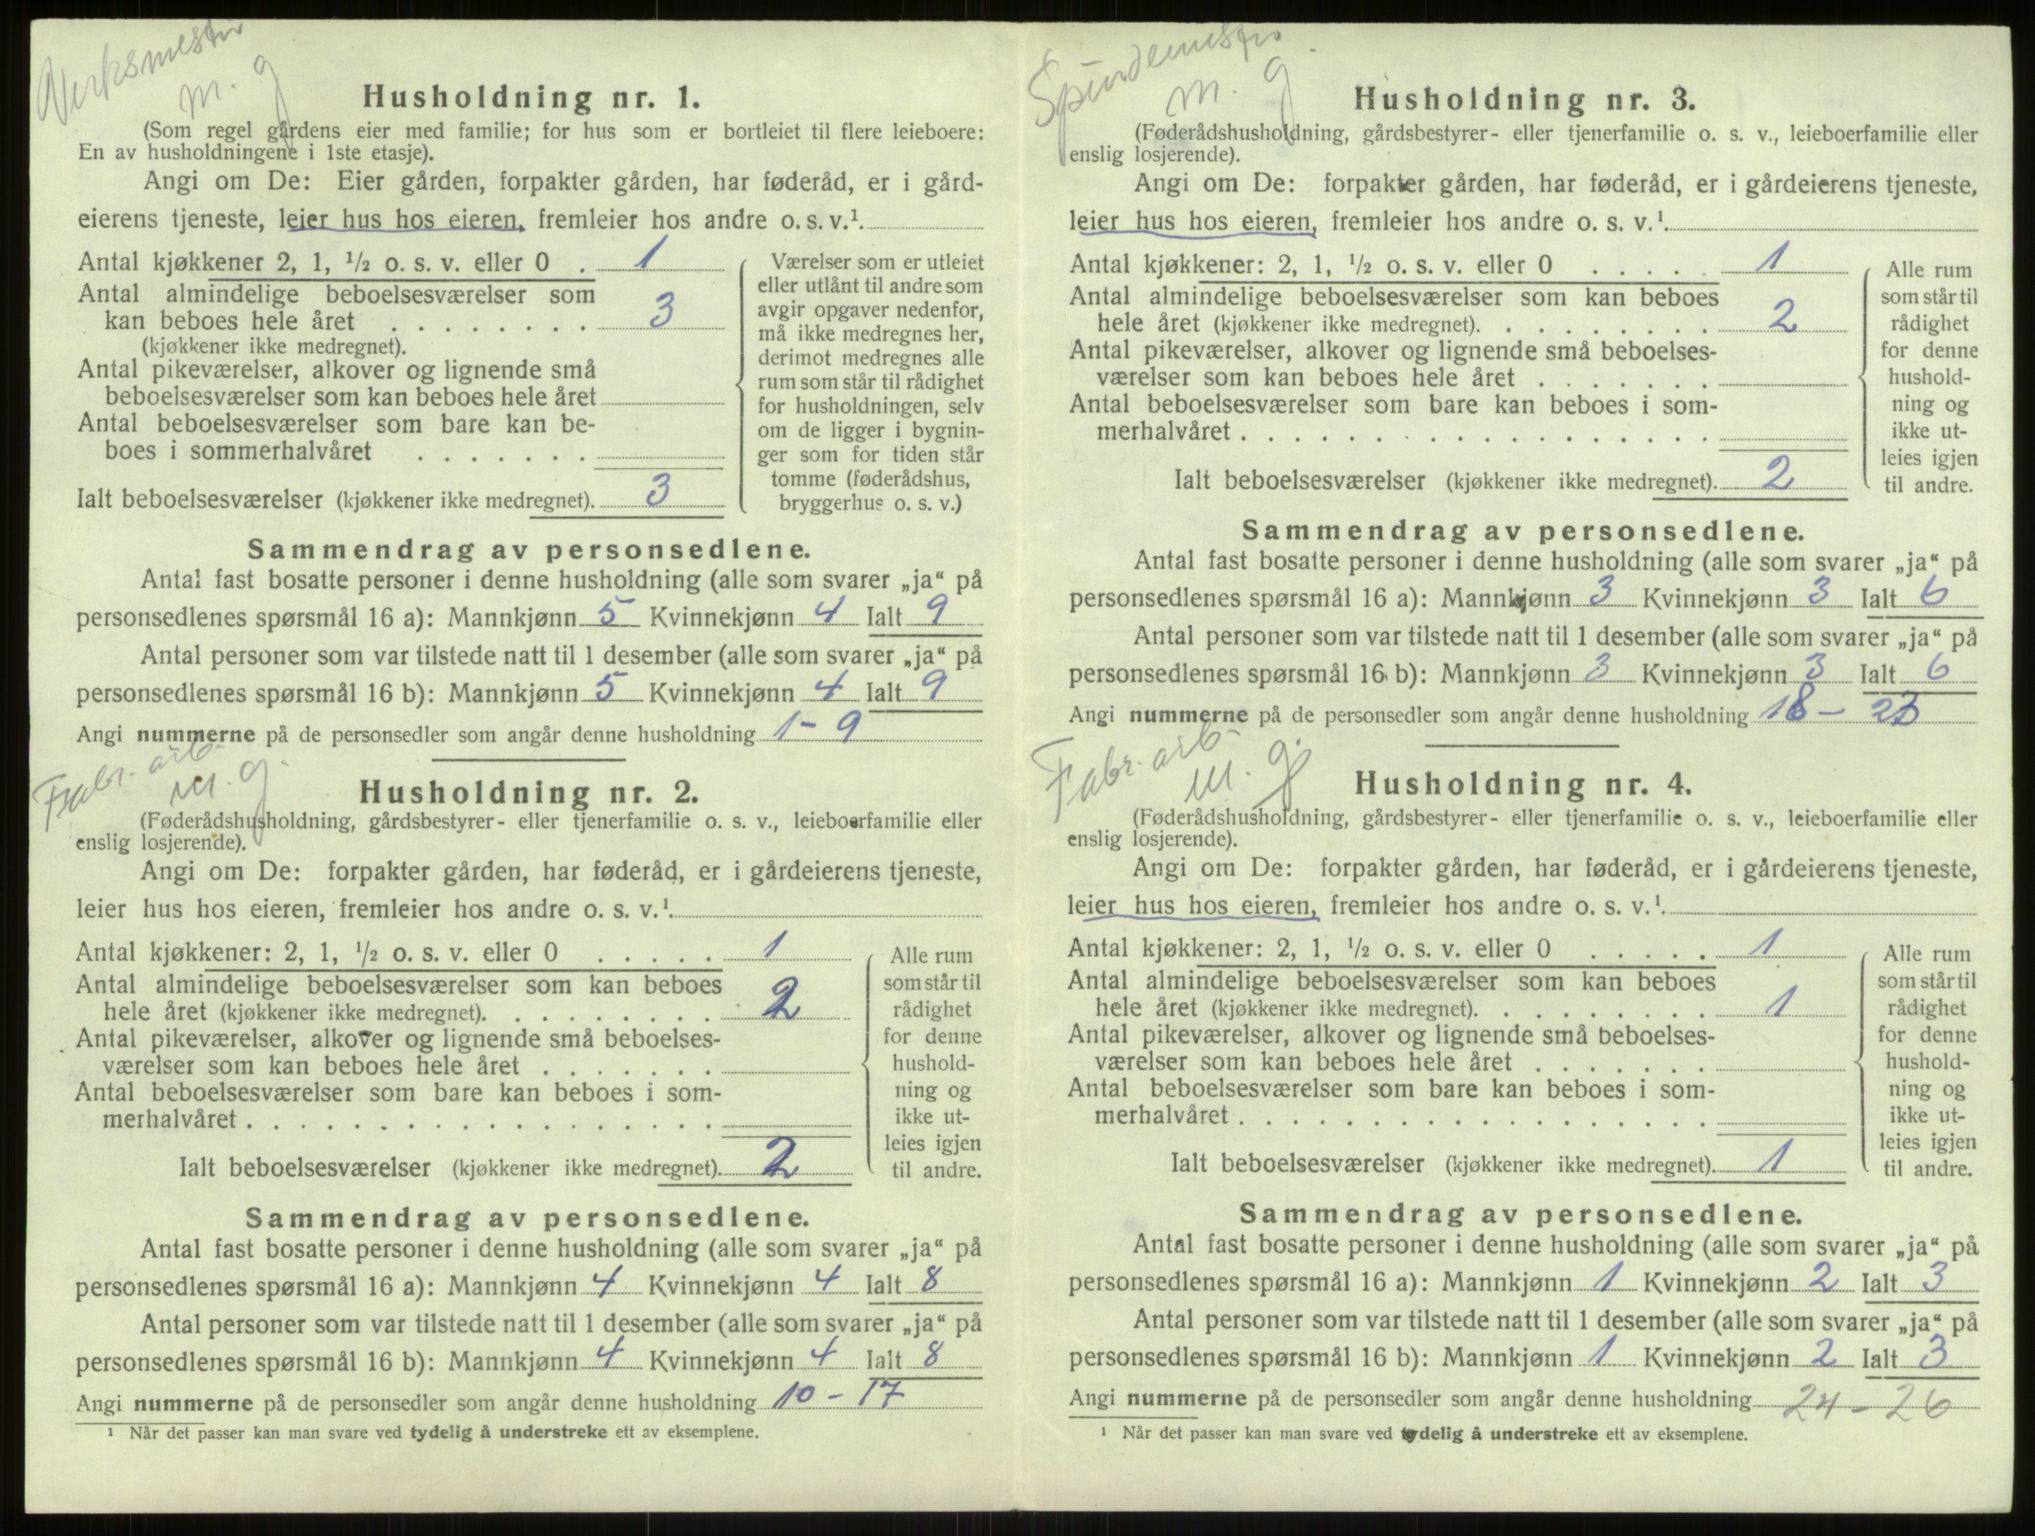 Verksmester
m. g
Husholdning nr. 1.
(Som regel gårdens eier med familie; for hus som er bortleiet til flere leieboere:
En av husholdningene i 1ste etasje).
Angi om De: Eier gården, forpakter gården, har føderåd, er i gård-
eierens tjeneste, leier hus hos eieren, fremleier hos andre o. s. v.¹.
Antal kjøkkener 2, 1, ½ o. s. v. eller 0 . 1
Antal almindelige beboelsesværelser som
kan beboes hele året . . . . . . . . 3
(kjøkkener ikke medregnet).
Antal pikeværelser, alkover og lignende små
beboelsesværelser som kan beboes hele året
Antal beboelsesværelser som bare kan be-
boes i sommerhalvåret . . . . . . .
Ialt beboelsesværelser (kjøkkener ikke medregnet). 3
Værelser som er utleiet
eller utlånt til andre som
avgir opgaver nedenfor,
må ikke medregnes her,
derimot medregnes alle
rum som står til rådighet
for husholdningen, selv
om de ligger i bygnin-
ger som for tiden står
tomme (føderådshus,
bryggerhus o. s. v.)
Sammendrag av personsedlene.
Antal fast bosatte personer i denne husholdning (alle som svarer „ja“ på
personsedlenes spørsmål 16 a): Mannkjønn 5 Kvinnekjønn 4 Ialt 9
Antal personer som var tilstede natt til 1 desember (alle som svarer „ja“ på
personsedlenes spørsmål 16 b): Mannkjønn 5 Kvinnekjønn 4 Ialt 9
Angi nummerne på de personsedler som angår denne husholdning 1 - 9
Fabr. arb.
m. g.
Husholdning nr. 2.
(Føderådshusholdning, gårdsbestyrer- eller tjenerfamilie o. s. v., leieboerfamilie eller
enslig losjerende).
Angi om De: forpakter gården, har føderåd, er i gårdeierens tjeneste,
leier hus hos eieren, fremleier hos andre o. s. v.¹.
Antal kjøkkener: 2, 1, ½ o. s. v. eller 0 . . . . . 1
Antal almindelige beboelsesværelser som kan beboes
hele året (kjøkkener ikke medregnet). . . . . . . . . 2
Antal pikeværelser, alkover og lignende små beboelses-
værelser som kan beboes hele året . . . . . . .
Antal beboelsesværelser som bare kan beboes i som-
merhalvåret . . . . . . . . . . . . . . . . . .
Ialt beboelsesværelser (kjøkkener ikke medregnet). 2
Alle rum
som står til
rådighet
for denne
hushold-
ning og
ikke ut-
leies igjen
til andre.
Sammendrag av personsedlene.
Antal fast bosatte personer i denne husholdning (alle som svarer „ja“ på
personsedlenes spørsmål 16 a): Mannkjønn 4 Kvinnekjønn 4 Ialt 8
Antal personer som var tilstede natt til 1 desember (alle som svarer „ja“ på
personsedlenes spørsmål 16 b): Mannkjønn 4 Kvinnekjønn 4 Ialt 8
Angi nummerne på de personsedler som angår denne husholdning 10 - 17
¹ Når det passer kan man svare ved tydelig å understreke ett av eksemplene.
m. g
Husholdning nr. 3.
(Føderådshusholdning, gårdsbestyrer- eller tjenerfamilie o. s. v., leieboerfamilie eller
enslig losjerende).
Angi om De: forpakter gården, har føderåd, er i gårdeierens tjeneste,
leier hus hos eieren, fremleier hos andre o. s. v.¹.
Antal kjøkkener: 2, 1, ½ o. s. v. eller 0 . . . . . 1
Antal almindelige beboelsesværelser som kan beboes
hele året (kjøkkener ikke medregnet). . . . . . . . . 2
Antal pikeværelser, alkover og lignende små beboelses-
værelser som kan beboes hele året . . . . . . .
Antal beboelsesværelser som bare kan beboes i som-
merhalvåret . . . . . . . . . . . . . . . . . .
Ialt beboelsesværelser (kjøkkener ikke medregnet). 2
Alle rum
som står til
rådighet
for denne
hushold-
ning og
ikke ut-
leies igjen
til andre.
Sammendrag av personsedlene.
Antal fast bosatte personer i denne husholdning (alle som svarer „ja“ på
personsedlenes spørsmål 16 a): Mannkjønn 3 Kvinnekjønn 3 Ialt 6
Antal personer som var tilstede natt til 1 desember (alle som svarer „ja“ på
personsedlenes spørsmål 16 b): Mannkjønn 3 Kvinnekjønn 3 Ialt 6
Angi nummerne på de personsedler som angår denne husholdning 18 - 23
Fabr. arb.
m. g.
Husholdning nr. 4.
(Føderådshusholdning, gårdsbestyrer- eller tjenerfamilie o. s. v., leieboerfamilie eller
enslig losjerende).
Angi om De: forpakter gården, har føderåd, er i gårdeierens tjeneste,
leier hus hos eieren, fremleier hos andre o. s. v.¹.
Antal kjøkkener: 2, 1, ½ o. s. v. eller 0 . . . . . 1
Antal almindelige beboelsesværelser som kan beboes
hele året (kjøkkener ikke medregnet). . . . . . . . . 1
Antal pikeværelser, alkover og lignende små beboelses-
værelser som kan beboes hele året . . . . . . .
Antal beboelsesværelser som bare kan beboes i som-
merhalvåret . . . . . . . . . . . . . . . . . .
Ialt beboelsesværelser (kjøkkener ikke medregnet). 1
Alle rum
som står til
rådighet
for denne
hushold-
ning og
ikke ut-
leies igjen
til andre.
Sammendrag av personsedlene.
Antal fast bosatte personer i denne husholdning (alle som svarer „ja“ på
personsedlenes spørsmål 16 a): Mannkjønn 1 Kvinnekjønn 2 Ialt 3
Antal personer som var tilstede natt til 1 desember (alle som svarer „ja“ på
personsedlenes spørsmål 16 b): Mannkjønn 1 Kvinnekjønn 2 Ialt 3
Angi nummerne på de personsedler som angår denne husholdning 24 - 26
¹ Når det passer kan man svare ved tydelig å understreke ett av eksemplene.